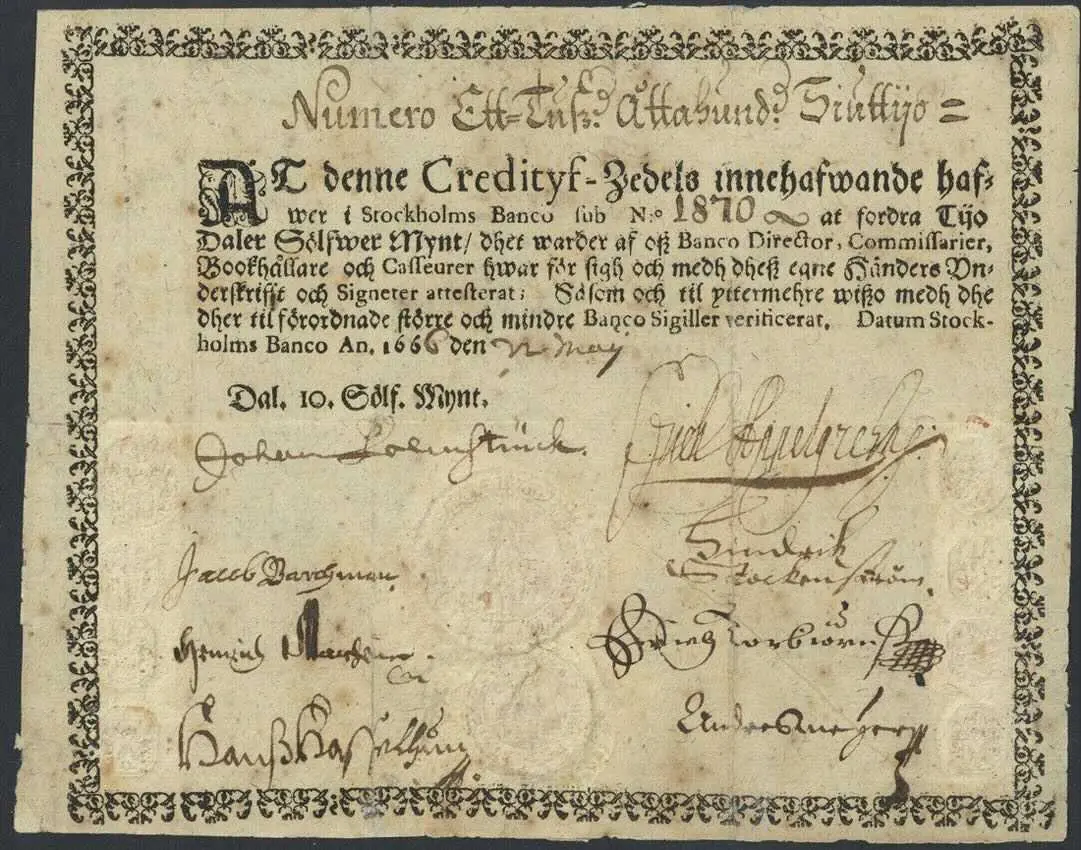 Numero Ett-Tusd. Åttahundd. Siuttijo =
AT denne Credityf-Zedels innehafwande haf-
wer i Stockholms Banco sub N:o 1870 at fordra Tijo
Daler Sölfwer Mynt/ dhet warder af oß Banco Director, Commissarier,
Bookhållare och Casseurer hwar för sigh och medh dheß egne Händers Vn-
derskrifft och Signeter attesterat; Såsom och til yttermehre wißo medh dhe
dher til förordnade större och mindre Banco Sigiller verificerat. Datum Stock-
holms Banco An. 1666 den May
Dal. 10. Sölf. Mynt.
Johan
Jacob Barchman
Hindrik
Stockenström.
Henrich
Hanß